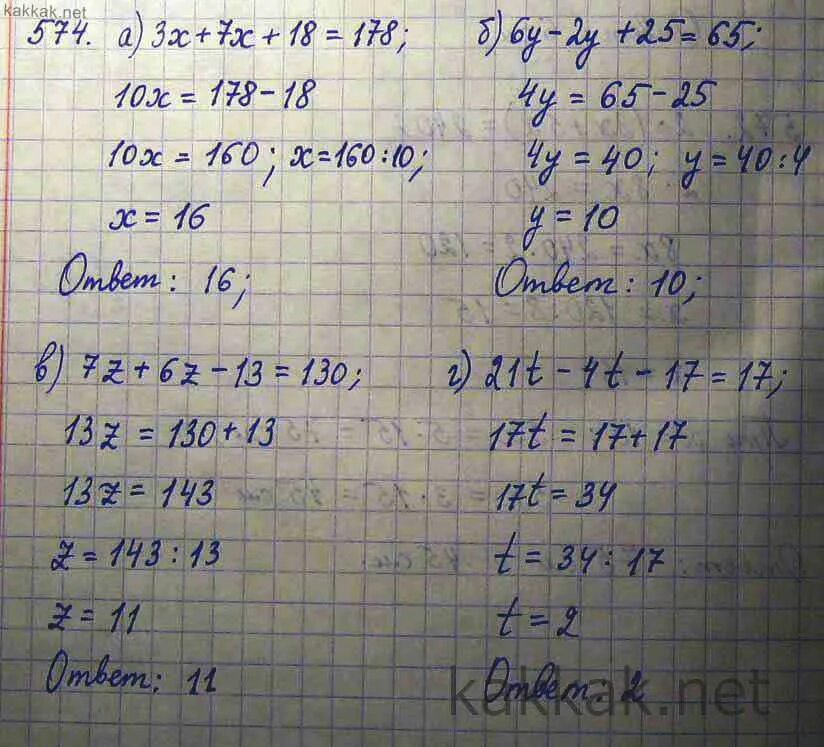 kakkak.net
574. а) 3x + 7x + 18 = 178;
10x = 178 - 18
10x = 160; x = 160 : 10;
x = 16
Ответ: 16;
б) 6y - 2y + 25 = 65;
4y = 65 - 25
4y = 40; y = 40 : 4
y = 10
Ответ: 10;
в) 7z + 6z - 13 = 130;
13z = 130 + 13
13z = 143
z = 143 : 13
z = 11
Ответ: 11
г) 21t - 4t - 17 = 17;
17t = 17 + 17
17t = 34
t = 34 : 17
t = 2
Ответ. 2
kakkak.net